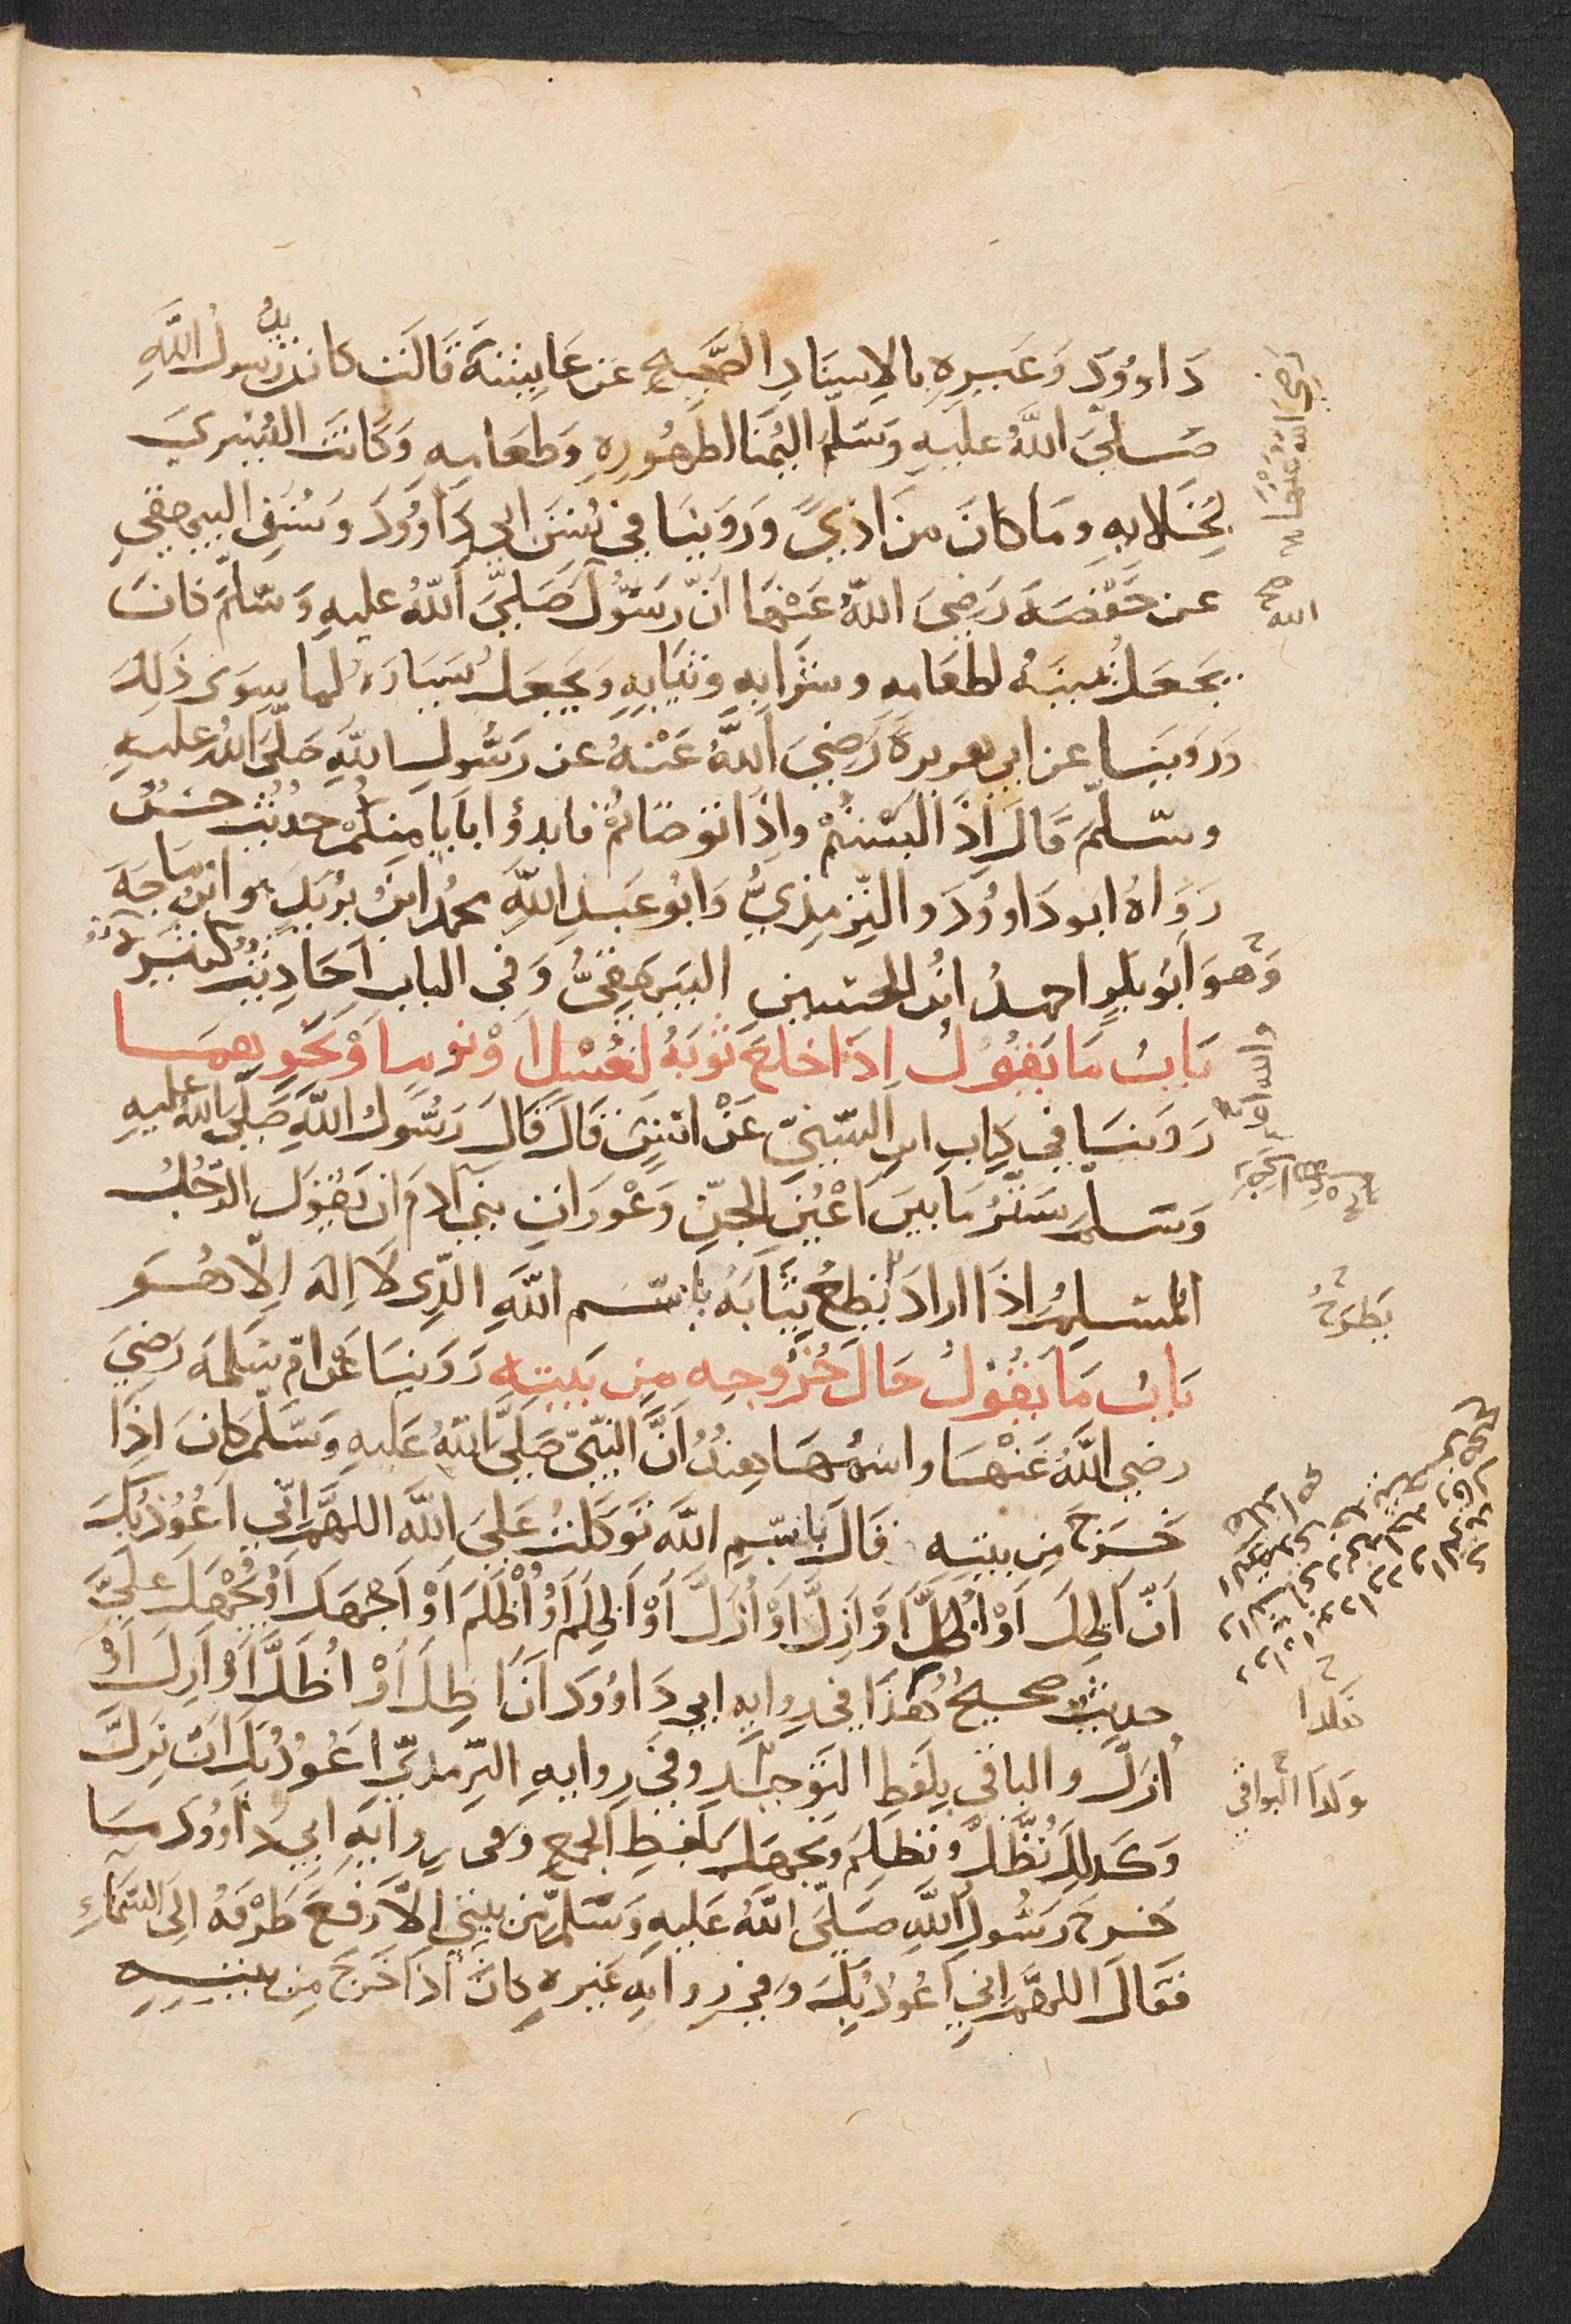 دَاوُودَ وَغَيرِهِ بالإسنَادِ الصَّحِيحِ عَن عَايِشَةَ قَالَت كانَتْ يدُ رسولُ اللَّهِ
صَلىَ اللَّهُ عليهِ وَسَلَّم اليُمْنَا لطَهُورِهِ وَطعَامِهِ وَكَانَت اليُسْرَي
لِخَلايهِ وَمَا كَانَ مِن اَذيً وَرَوَينَا في سُنَن ابي دَاوُودَ وَسُنَنِ البيهقي
عن حَفْصَةَ رَضِيَ اللَّهُ عَنْهَا انّ رَسَوُلَ صَلىَّ اللَّهُ عليهِ وَسَلمَ كانَ
يَجعَلُ يمينَهُ لطعَامهِ وشَرَابهِ وثيَابهِ وَيَجعَلُ يَسَارَهُ لما سِوَى ذَلِكَ
وَرَوَينَا عن ابي هريرةَ رَضِيَ اللَّهُ عَنْهُ عن رَسُولِ اللَّهِ صَلَّى اللهُ عليهِ
وسَلّمَ قَالَ اِذَا لبَسْتُمْ واِذَا توَضَاتُمْ فابدؤا بايَامِنِكُمْ حديثٌ حَسَنٌ
رَوَاهُ ابو دَاوُودَ والتِرْمِذِيُّ وَابُو عَبدِ اللَّهِ محمدُ ابنُ يزيدَ هو ابنُ مَاجَهَ
وَهوَ اَبُو بَكرٍ احمدُ ابنُ الحسَينِ البَيهَقيُّ وَفي البابِ احَادِيثُ كثيرَةٌ
بَابُ مَا يَقُولُ اِذَا خلعَ ثَوبَهُ لغُسْلٍ اَوْ نومٍ اوْ نَحْوِهِمَا
رَوَينَا في كِتَابِ ابنِ السّنيّ عَنْ انَسٍ قَالَ قَالَ رَسُولُ اللَّهِ صَلَّى اللهُ عليهِ
وَسَلمَ سَتْرُ مَا بَينَ اَعْيُنِ الجِنّ وَعَوْرَاتِ بَنِي آدَمَ اَن يَقُولَ الرّجُلُ
المُسْلِمُ اِذَا ارادَ يَطرحُ ثيَابَهُ باسْم اللَّهِ الّذِى لَا اِلهَ اِلّا هُوَ
بَابُ مَا يقُولُ حَالَ خُرُوجِهِ مِن بَيتِهِ رَوَينَا عَنْ امّ سَلمَةَ رَضِيَ
رضي اللَّهُ عَنْهَا واسمُهَا هِندُ اَنَّ النَّبِيّ صَلىَّ اللهُ عَلَيهِ وَسَلّمَ كانَ اِذَا
خَرَجَ مِن بيتِهِ قَالَ بِاسْمِ اللَّه تَوَكَّلتُ عَلىَ اللَّه اللهمَّ اِنّي اَعُوذُ بِكَ
اَن اَضِلَّ اَوْ اُضَلَّ اَوْ اَزِلَّ اَوْ اُزَلَّ اَوْ اَظلِمَ اَوْ اُظْلَمَ اَوْ اَجهَلَ اَوْ يُجْهَلَ عَليَّ
حديثٌ صحيحٌ هكذَا في رِوَايهِ ابي دَاوُودَ اَن اَضِلَّ اَوْ اُضَلَّ اَوْ اَزِلَّ اَوْ
اُزلَّ والباقي بلَفظِ التَوحيدِ وفي رِوايهِ التِرْمذيِّ اَعُوذُ بِكَ اَن نَزِلَّ
وَكَذلِكَ نَضِلَّ وَنَظلِمَ وَنَجهَلَ بِلفظِ الجمعِ وفى رِوايَهِ ابي دَاوُودَ مَا
خرجَ رَسُولُ اللَّهِ صَلىَّ اللَّهُ عَليهِ وَسَلّمَ مِن بَيتي اِلّا رَفَعَ طَرْفَهُ اِلَى السَّمَاءِ
فَقَالَ اللهمَّ اِني اَعُوذُ بِكَ وَفي رِوَايهِ غيرِهِ كانَ اِذَا خَرَجَ مِن بيتِهِ
رَضِيَ اللَّهُ عَنْهَا
صح
الله
والله اعلم
يَطرَحُ
هكذا
وَكذَا البَواقي